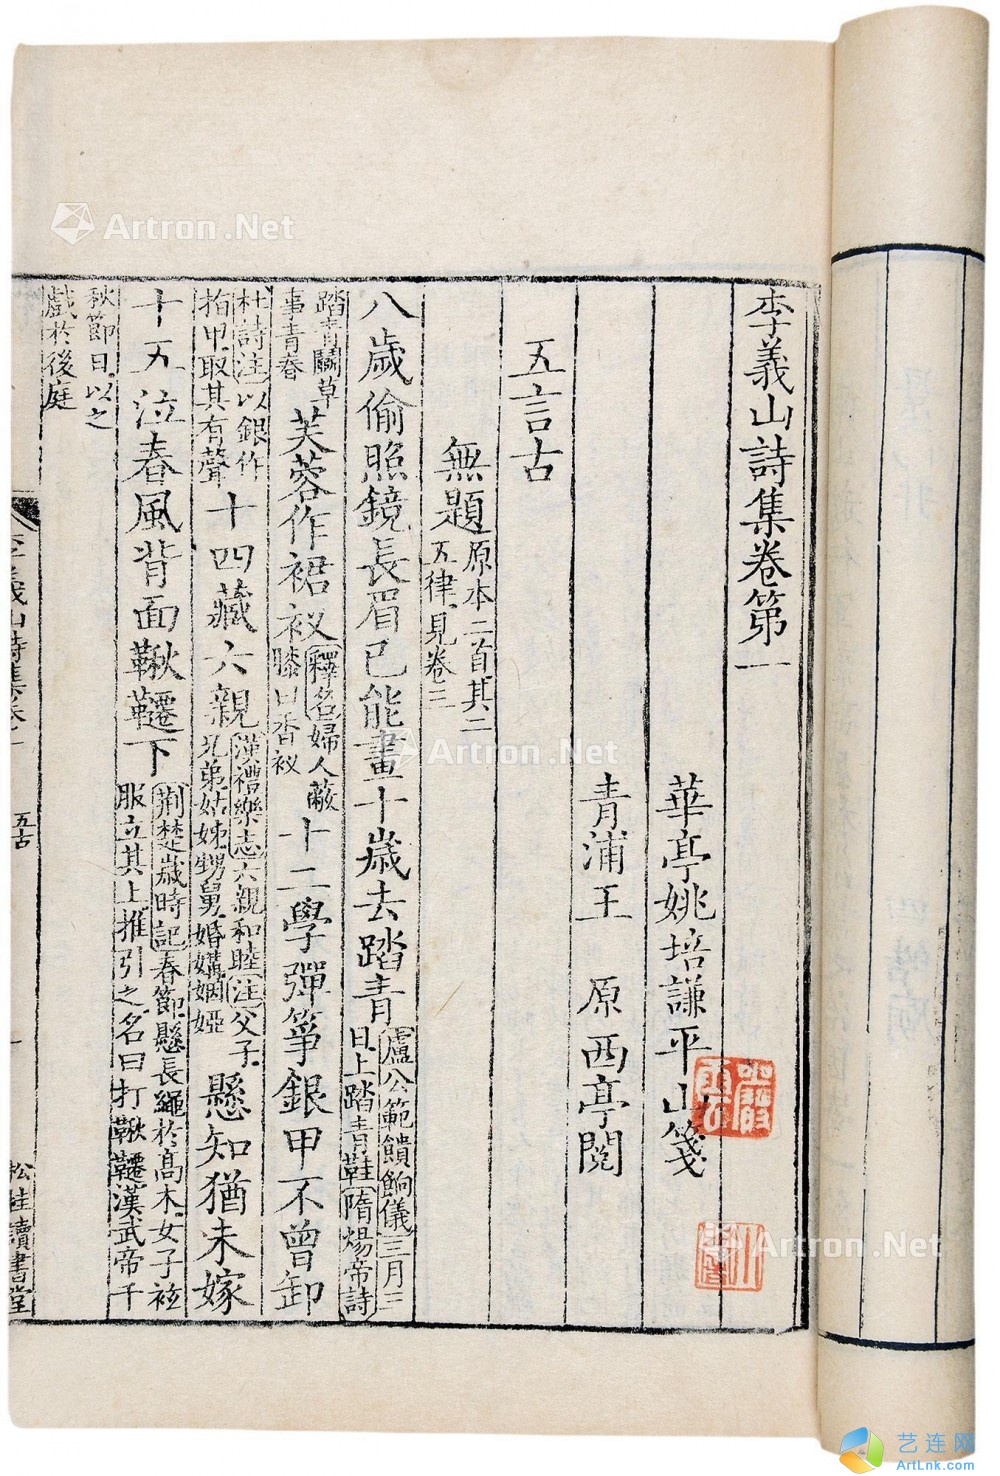 李義山詩集卷第一
華亭姚培謙平山箋
青浦王原西亭閱
五言古
無題原本二首其二五律見卷三
八歲偷照鏡長眉已能畫十歲去踏青盧公範饋餉儀三月三日上踏青鞋隋煬帝詩
踏青鬭草事青春芙蓉作裙衩釋名婦人蔽膝曰香衩十二學彈箏銀甲不曾卸
杜詩注以銀作指甲取其有聲十四藏六親漢禮樂志六親和睦注父子兄弟姑姊甥舅婚媾姻婭懸知猶未嫁
十五泣春風背面鞦韆下荆楚歲時記春節懸長繩於高木女子袨服立其上推引之名曰打鞦韆漢武帝千
秋節日以之戲於後庭
李義山詩集卷一 五古 一 松桂讀書堂
Artron.Net
Artron.Net
Artron.Net
艺连网
ArtLnk.com